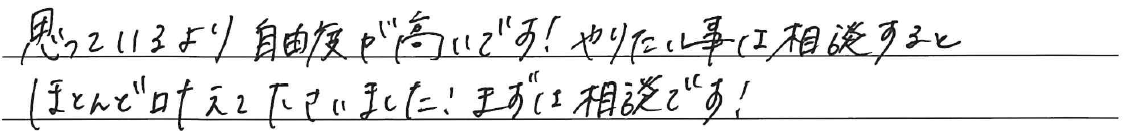 思っているより自由度が高いです!やりたい事は相談すると
ほとんど叶えてださいました!まずは相談です!